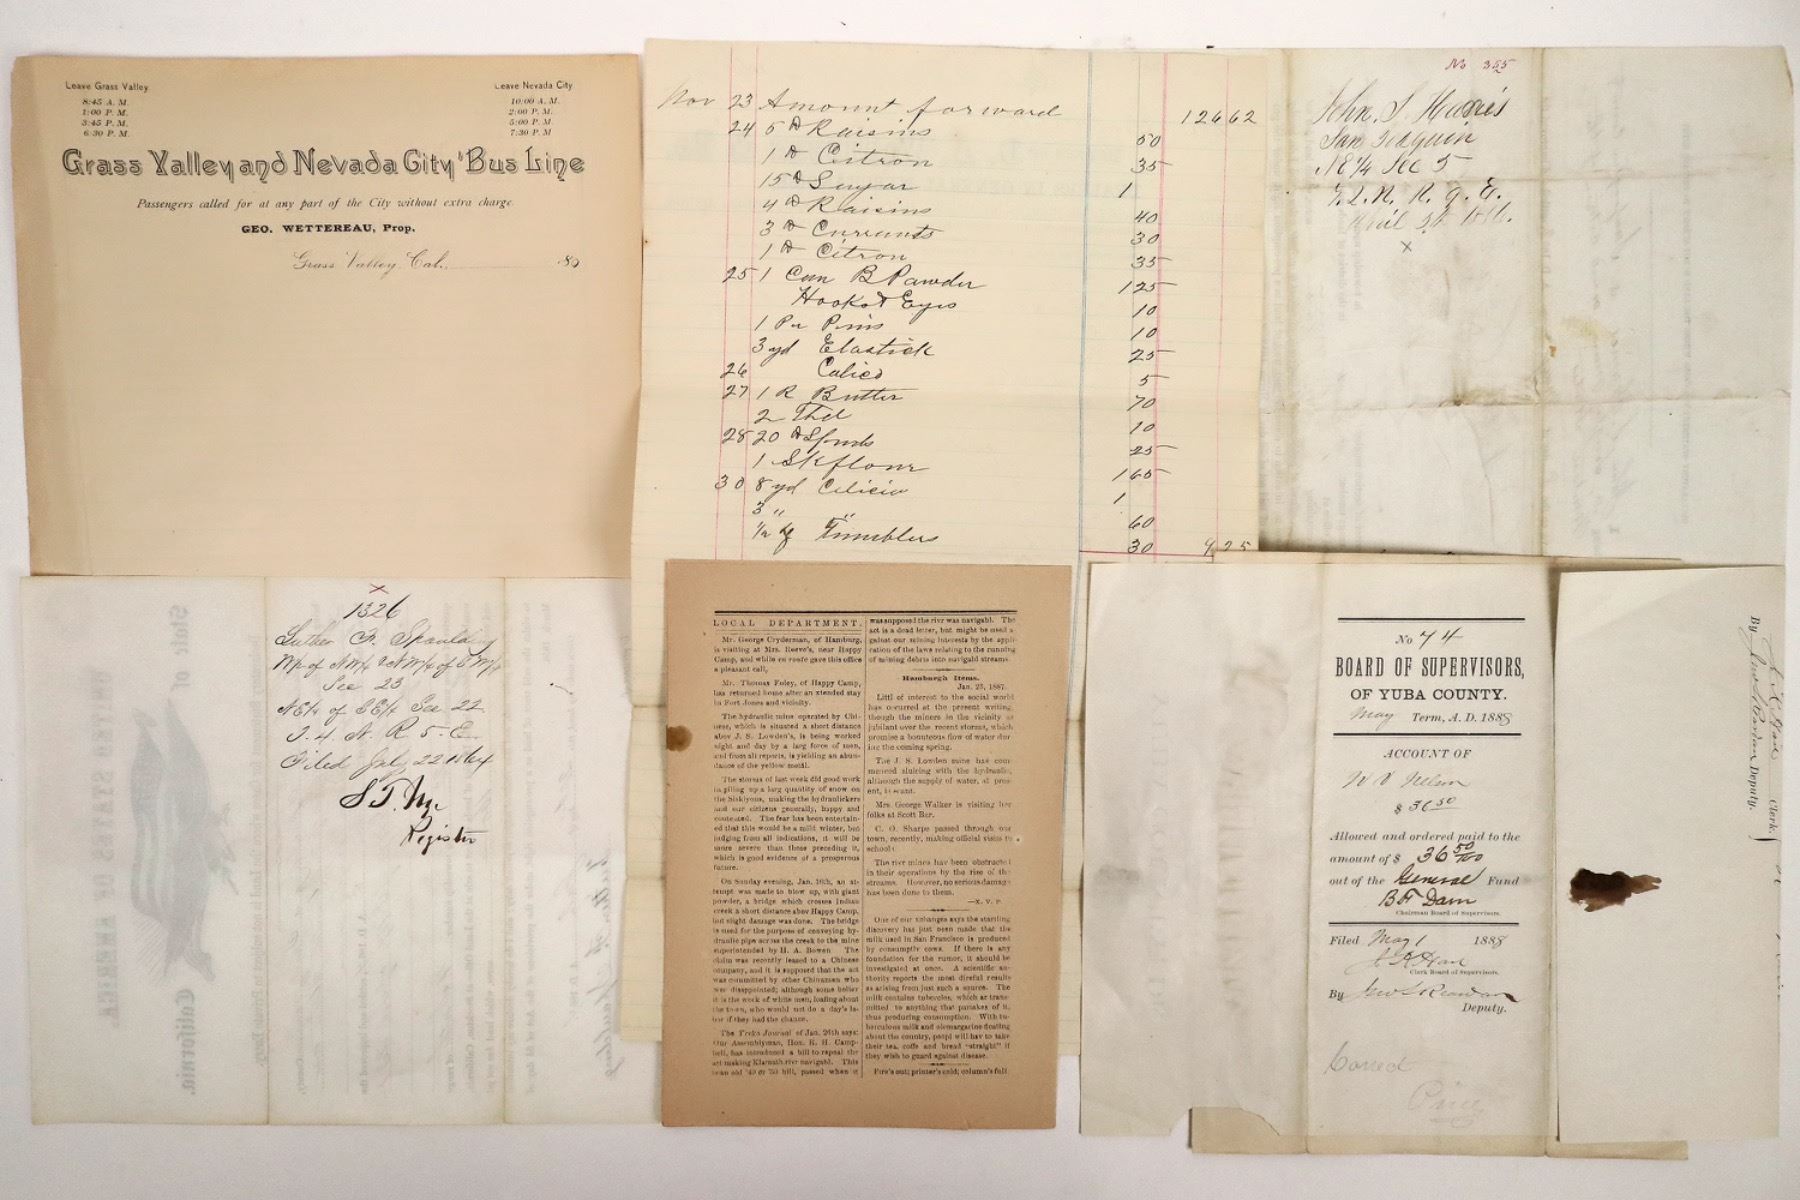 Leave Grass Valley
8:45 A. M.
1:00 P. M.
3:45 P. M.
6:30 P. M.
Leave Nevada City
10:00 A. M.
2:00 P. M.
5:00 P. M.
7:30 P. M
Grass Valley and Nevada City 'Bus Line
Passengers called for at any part of the City without extra charge.
GEO. WETTEREAU, Prop.
Grass Valley, Cal., 189
Nov 23 Amount forward 12662
24 5 # Raisins 50
1 # Citron 35
15 # Sugar 1
4 # Raisins 40
3 # Currants 30
1 # Citron 35
25 1 Can B Pawder 125
Hooks & Eyes 10
1 Pa Pins 10
3 yd Elastick 25
26 Calico 5
27 1 R Butter 70
2 Thd 10
28 20 # Spuds 25
1 Sk flour 165
30 8 yd Calico 1
3 " " 60
1/2 Tumblers 30 925
No 355
John. S. Harris
San Joaquin
NE 1/4 Sec 5
x
x
1326
Luther Spaulding
Sec 23
NE 1/4 of SE 1/4 Sec 22
T. 4. N. R 5. E
Filed July 22 1864
Register
State of California.
UNITED STATES OF AMERICA.
LOCAL DEPARTMENT.
Mr. George Cryderman, of Hamburg,
is visiting at Mrs. Reeve's, near Happy
Camp, and while en route gave this office
a pleasant call,
Mr. Thomas Foley, of Happy Camp,
has returned home after an xtended stay
in Fort Jones and vicinity.
The hydraulic mine operated by Chi-
nese, which is situated a short distance
abov J. S. Lowden's, is being worked
night and day by a larg force of men,
and from all reports, is yielding an abun-
dance of the yellow metal.
The storms of last week did good work
in piling up a larg quantity of snow on
the Siskiyous, making the hydraulickers
and our citizens generally, happy and
contented. The fear has been entertain-
ed that this would be a mild winter, but
judging from all indications, it will be
more severe than those preceding it,
which is good evidence of a prosperous
future.
On Sunday evening, Jan. 16th, an at-
tempt was made to blow up, with giant
powder, a bridge which crosses Indian
creek a short distance abov Happy Camp,
but slight damage was done. The bridge
is used for the purpose of conveying hy-
draulic pipe across the creek to the mine
superintended by H. A. Bowen The
claim was recently leased to a Chinese
company, and it is supposed that the act
was committed by other Chinamen who
wer disappointed; although some believ
it is the work of white men, loafing about
the town, who would not do a day's la-
bor if they had the chance.
The Yreka Journal of Jan. 26th says:
Our Assemblyman, Hon. R. H. Camp-
bell, has introduced a bill to repeal the
act making Klamath river navigabl. This
was an old '49 or '50 bill, passed when it
was supposed the rivr was navigabl. The
act is a dead letter, but might be used a
gainst our mining interests by the appli-
cation of the laws relating to the running
of mining debris into navigabl streams.
Hamburgh Items.
Jan. 23, 1887.
Littl of interest to the social world
has occurred at the present writing,
though the miners in the vicinity ar
jubilant over the recent storms, which
promise a bounteous flow of water dur-
ing the coming spring.
The J. S. Lowden mine has com-
menced sluicing with the hydraulic,
although the supply of water, at pres-
ent, is scant.
Mrs. George Walker is visiting her
folks at Scott Bar.
C. O. Sharpe passed through our
town, recently, making official visits to
schools.
The rivr mines hav been obstructed
in their operations by the rise of the
streams. However, no serious damage
has been done to them.
—X. Y. P.
One of our xchanges says the startling
discovery has just been made that the
milk used in San Francisco is produced
by consumptiv cows. If there is any
foundation for the rumor, it should be
investigated at once. A scientific au-
thority reports the most direful results
as arising from just such a source. The
milk contains tubercles, which ar trans-
mitted to anything that partakes of it,
thus producing consumption. With tu-
berculous milk and oleomargarine floating
about the country, peopl will hav to take
their tea, coffe and bread "straight" if
they wish to guard against disease.
Fire's out; printer's cold; column's full.
No 74
BOARD OF SUPERVISORS,
OF YUBA COUNTY.
May Term, A. D. 1888
ACCOUNT OF
W V Nelson
$ 36 50
Allowed and ordered paid to the
amount of $ 36 50/100
out of the General Fund
Chairman Board of Supervisors.
Filed May 1 1888
Clerk Board of Supervisors.
By
Deputy.
Clerk.
By Deputy.